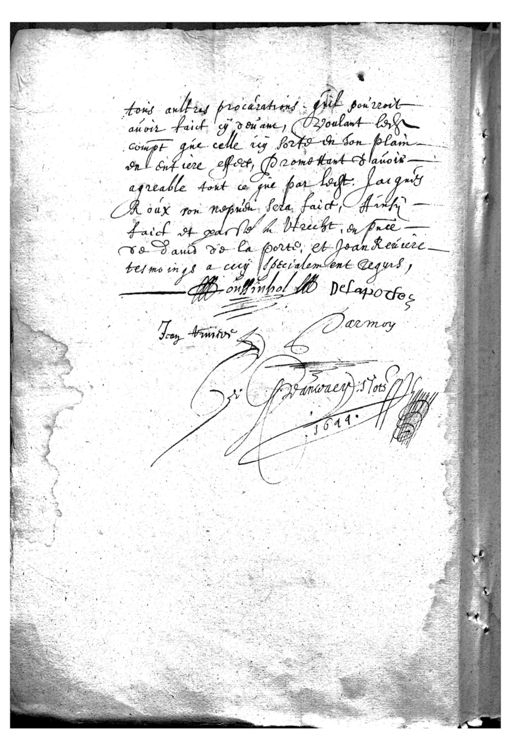 tous aultres procurations qu'il pourroit
avoir faict cy devant, Voulant led. Sr.
compt que celle icy sorte en son plain
en entiere effect, Promettant d'avoir
agreable tout ce que par led. Jacques
Roux son nepveu sera faict, Ainsy
faict et passé a Utrecht, en pnce
de david de la porte, et Jean Reviere
tesmoings a cecy specialement requis,
Delaporte
Jean
Par moy
Not
1644.